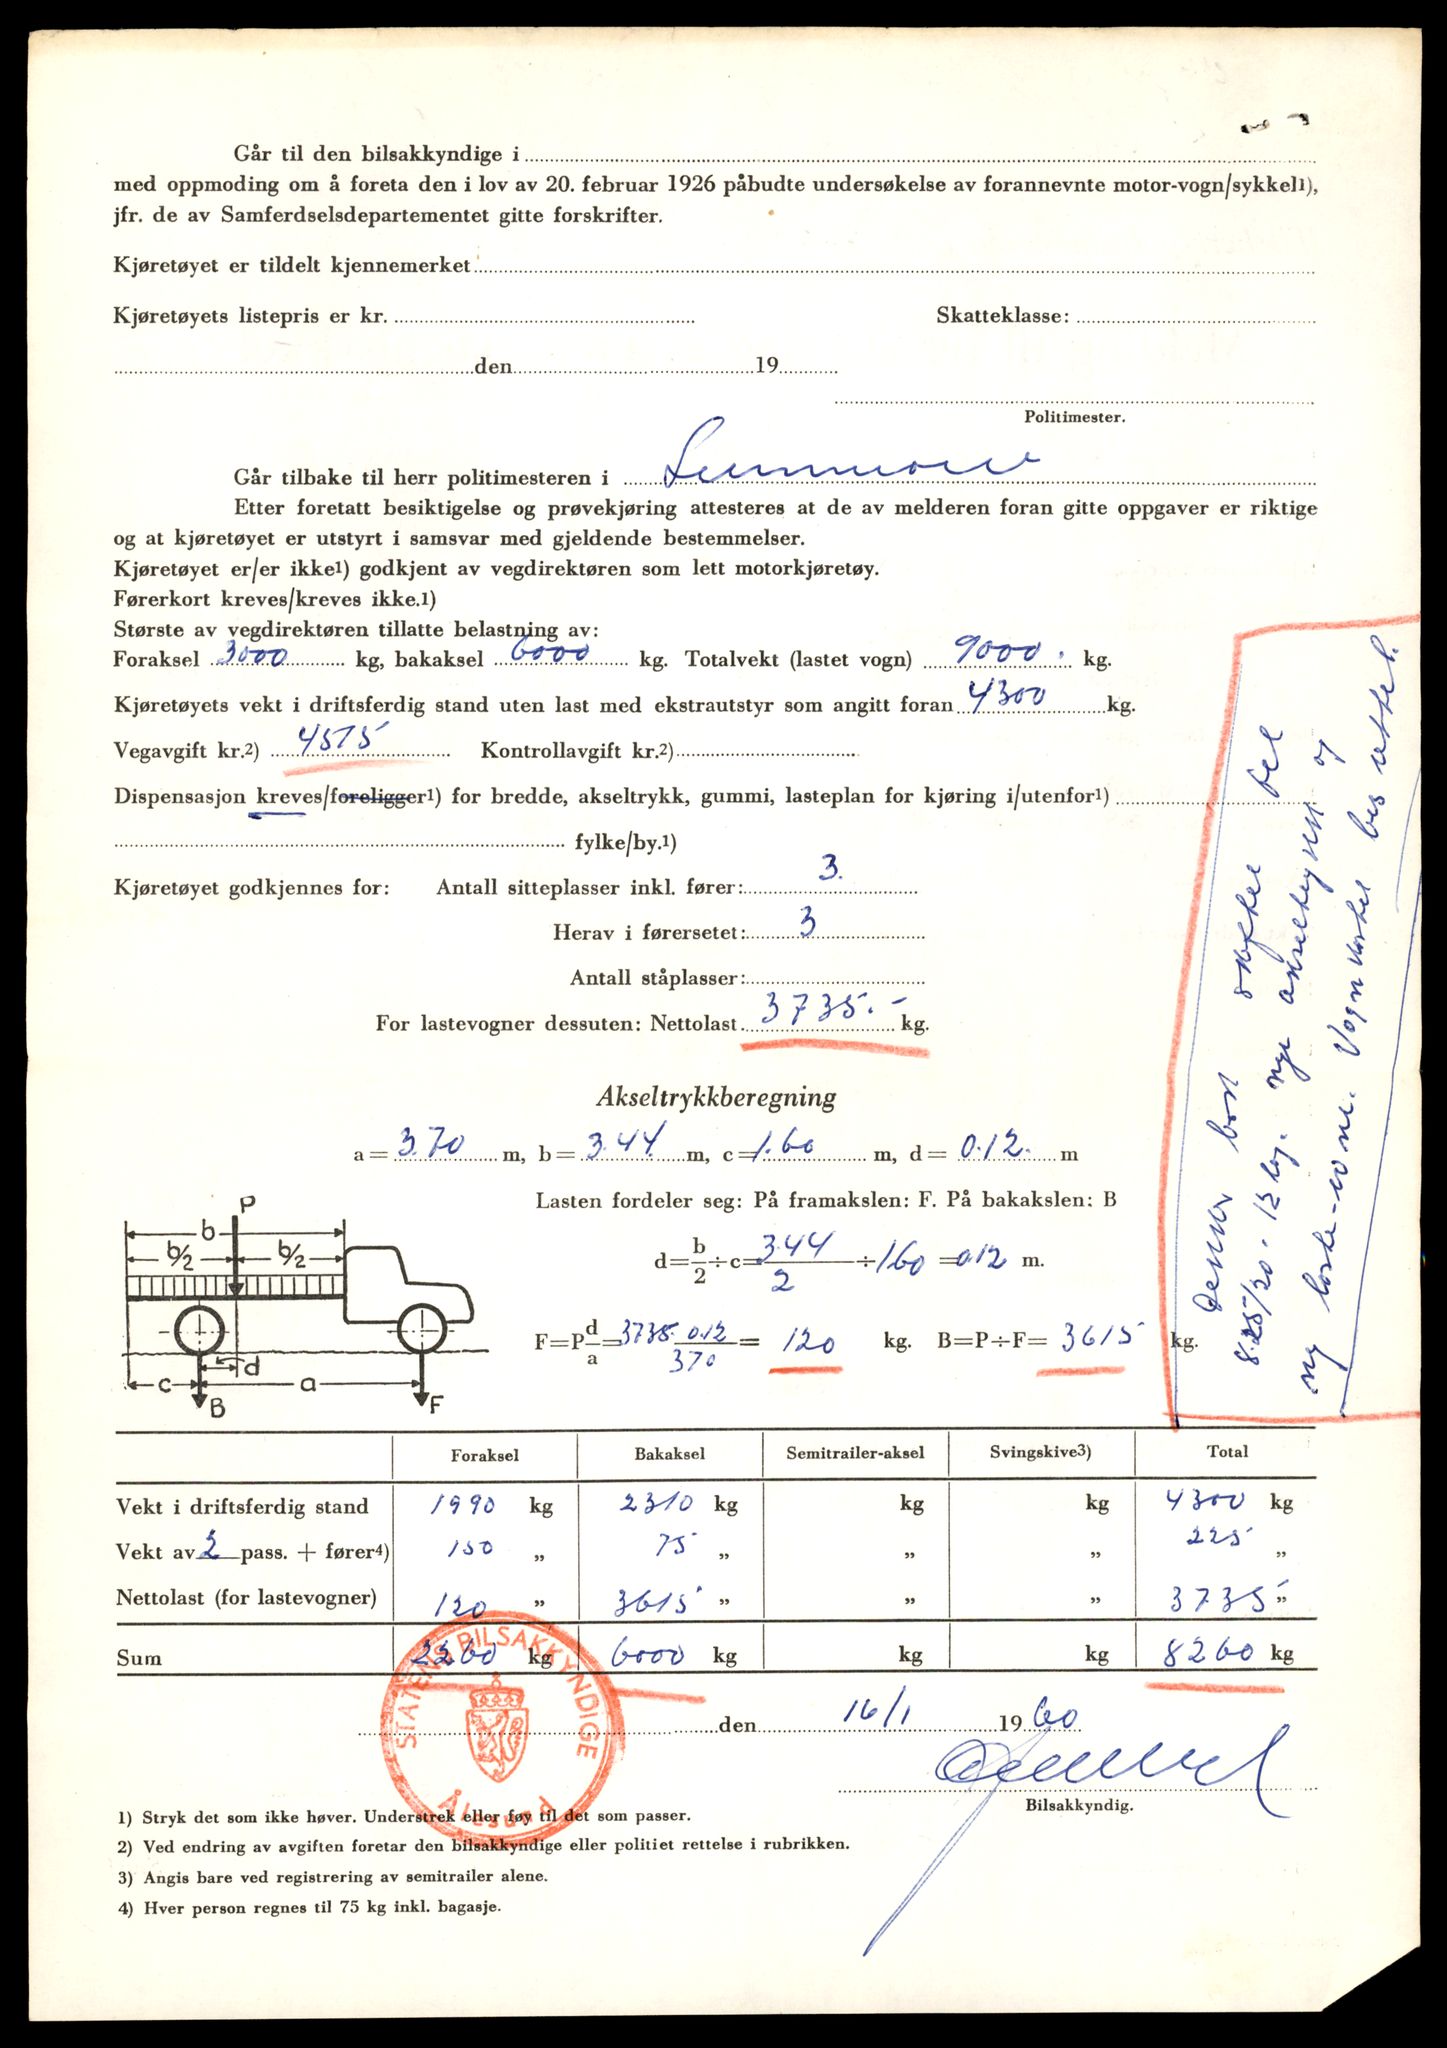 Går til den bilsakkyndige i
med oppmoding om å foreta den i lov av 20. februar 1926 påbudte undersøkelse av forannevnte motor-vogn/sykkel1),
jfr. de av Samferdselsdepartementet gitte forskrifter.
Kjøretøyet er tildelt kjennemerket
Kjøretøyets listepris er kr. Skatteklasse:
den 19
Politimester.
Går tilbake til herr politimesteren i Sunnmøre
Etter foretatt besiktigelse og prøvekjøring attesteres at de av melderen foran gitte oppgaver er riktige
og at kjøretøyet er utstyrt i samsvar med gjeldende bestemmelser.
Kjøretøyet er/er ikke1) godkjent av vegdirektøren som lett motorkjøretøy.
Førerkort kreves/kreves ikke.1)
Største av vegdirektøren tillatte belastning av:
Foraksel 3000 kg, bakaksel 6000 kg. Totalvekt (lastet vogn) 9000. kg.
Kjøretøyets vekt i driftsferdig stand uten last med ekstrautstyr som angitt foran 4300 kg.
Vegavgift kr.2) 4575 Kontrollavgift kr.2)
Dispensasjon kreves/foreligger1) for bredde, akseltrykk, gummi, lasteplan for kjøring i/utenfor1)
fylke/by.1)
Kjøretøyet godkjennes for: Antall sitteplasser inkl. fører: 3.
Herav i førersetet: 3
Antall ståplasser:
For lastevogner dessuten: Nettolast 3735.- kg.
Akseltrykkberegning
a = 3.70 m, b = 3.44 m, c = 1.60 m, d = 0.12. m
Lasten fordeler seg: På framakslen: F. På bakakslen: B
d = b/2 ÷ c = 3.44/2 ÷ 1.60 = 0.12 m.
F=P d/a = 3735. 0.12/370 = 120 kg. B=P÷F= 3615 kg.
P
b
b/2 b/2
d
c a
B F
Foraksel Bakaksel Semitrailer-aksel Svingskive3) Total
Vekt i driftsferdig stand 1990 kg 2310 kg kg kg 4300 kg
Vekt av 2 pass. + fører4) 150 „ 75 „ „ „ 225 „
Nettolast (for lastevogner) 120 „ 3615 „ „ „ 3735 „
Sum 2260 kg 6000 kg kg kg 8260 kg
STATENS BILSAKKYNDIGE
Ålesund
den 16/1 1960
Bilsakkyndig.
1) Stryk det som ikke høver. Understrek eller føy til det som passer.
2) Ved endring av avgiften foretar den bilsakkyndige eller politiet rettelse i rubrikken.
3) Angis bare ved registrering av semitrailer alene.
4) Hver person regnes til 75 kg inkl. bagasje.
Denne har skiftet
8.25/20. 12 lag. nye akseltrykk og
ny laste-evne. Vognkortet bes